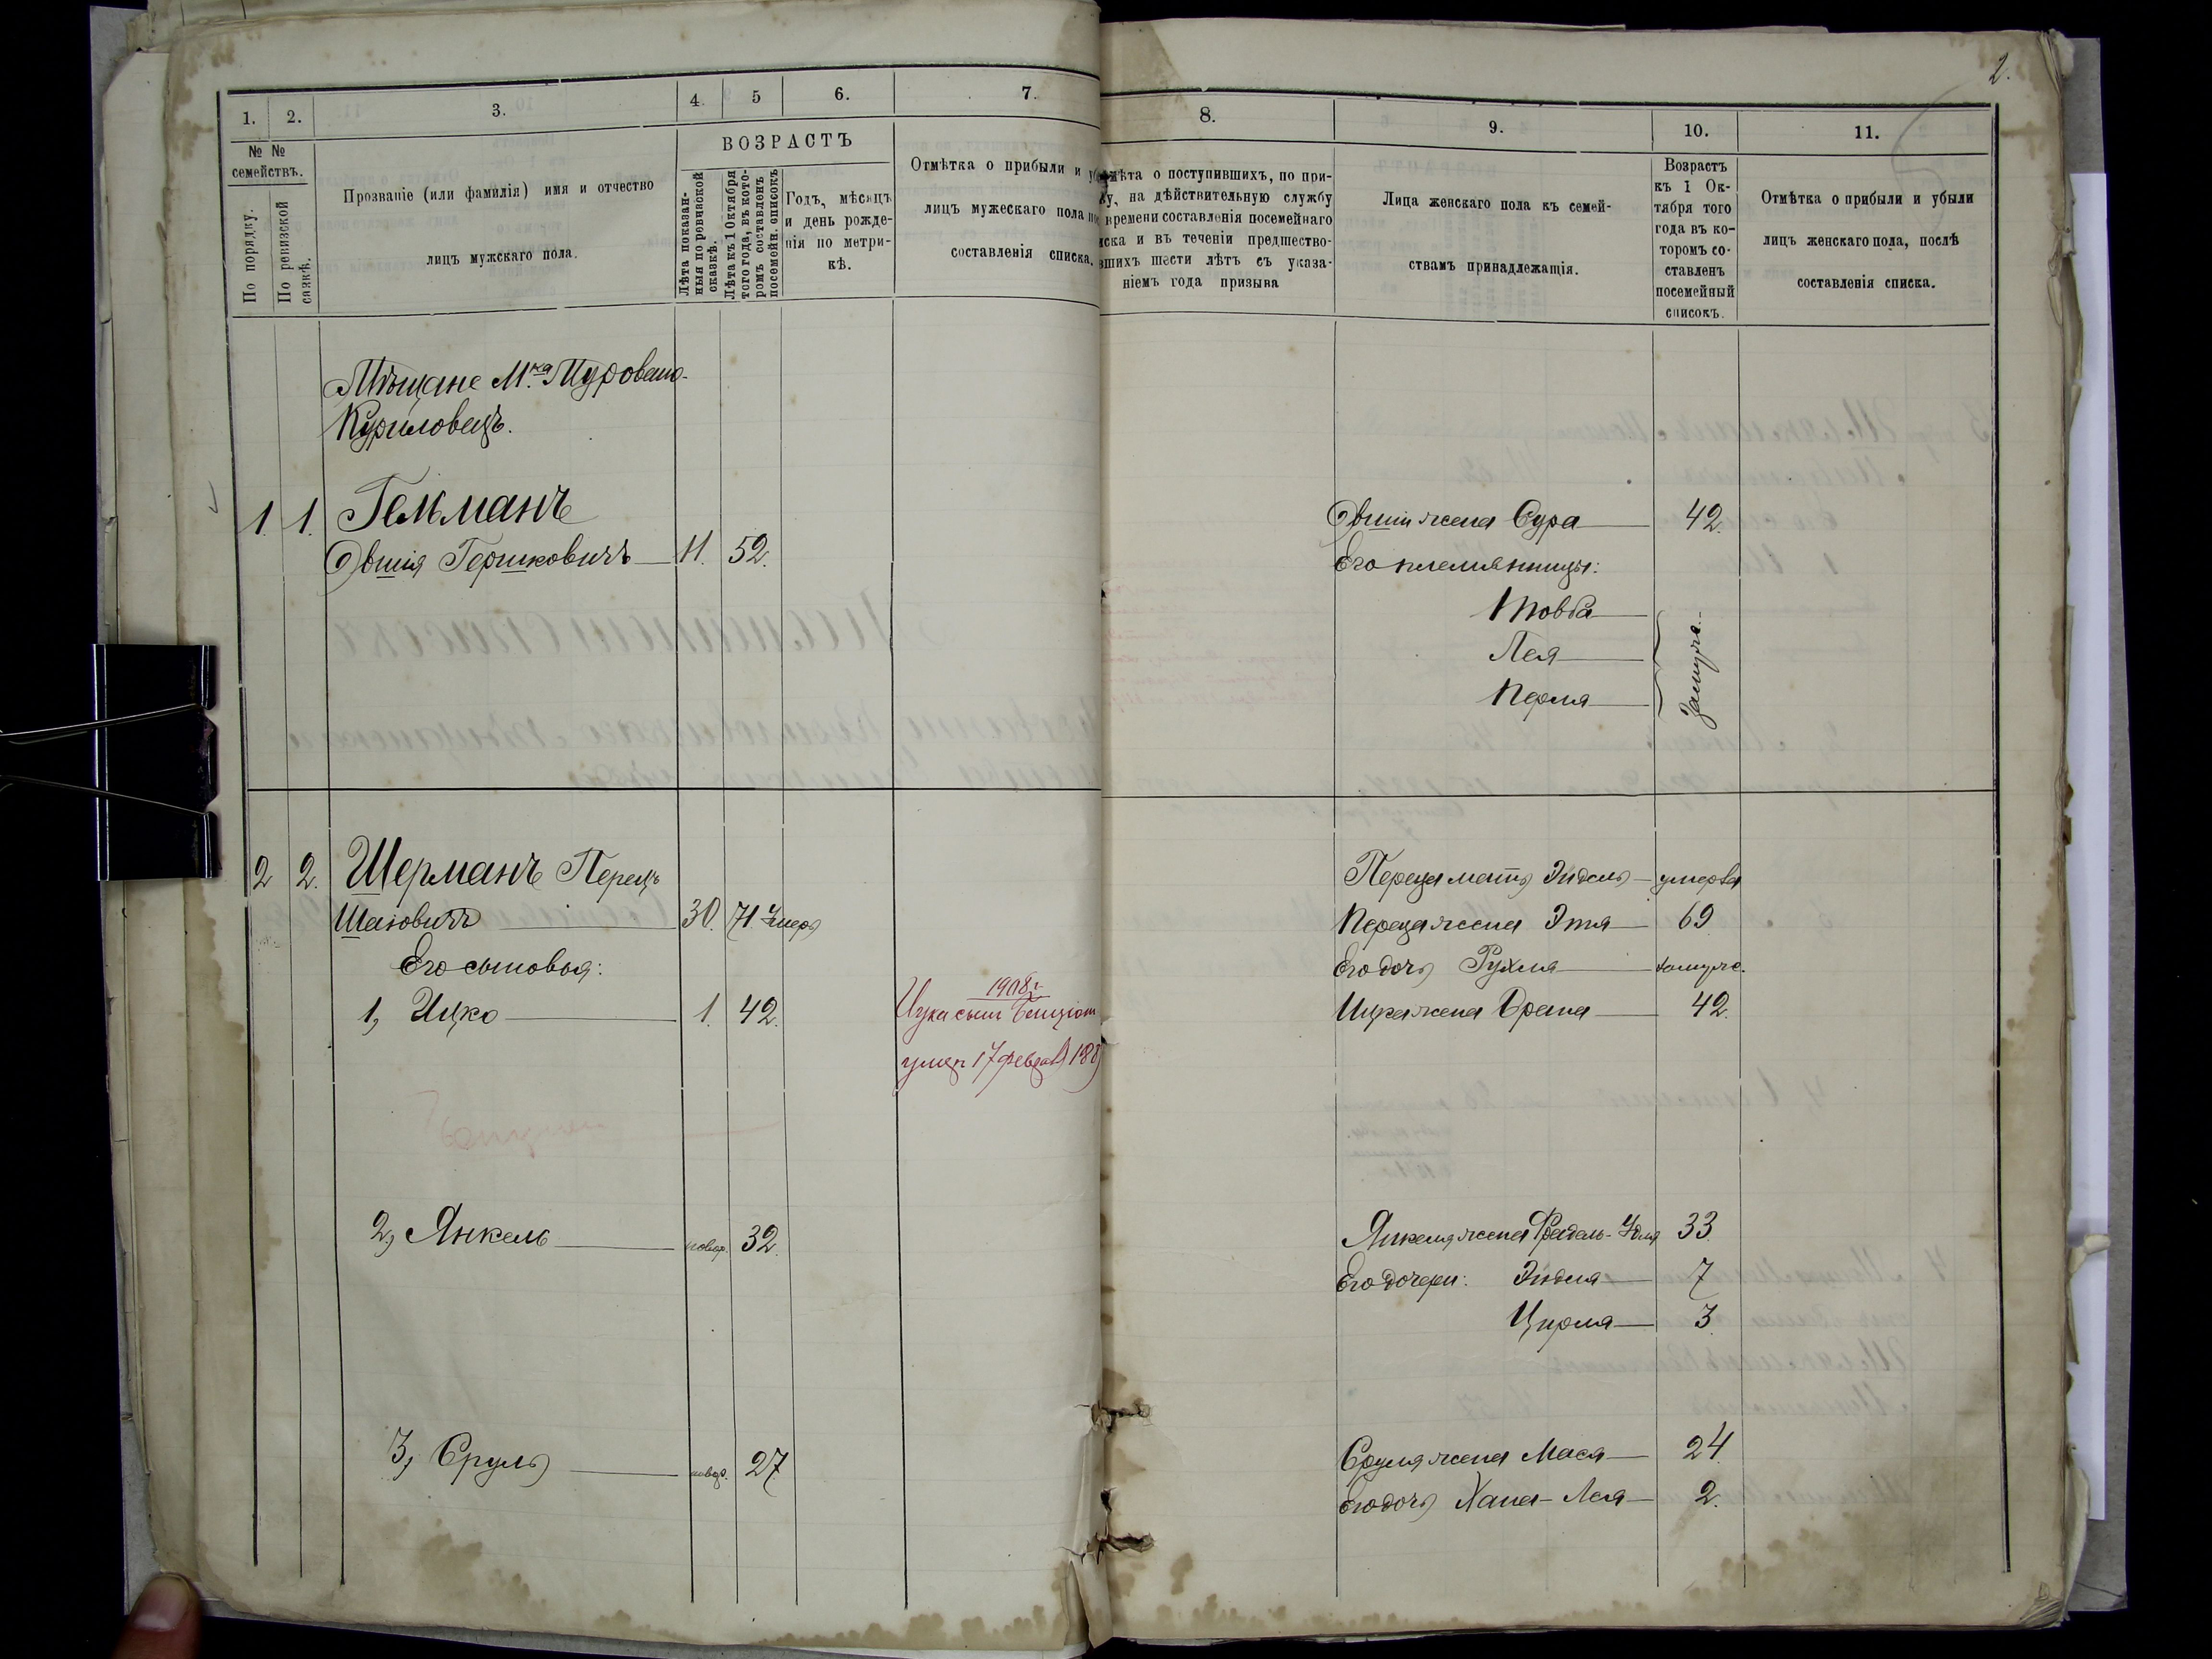 2.
1. 2. 3. 4. 5 6. 7.
№ №
семействъ.
По порядку.
По ревизской
сазкѣ.
Прозваніе (или фамилія) имя и отчество
лицъ мужскаго пола.
ВОЗРАСТЪ
Лѣта показан-
ныя по ревизской
сказкѣ.
Лѣта къ 1 Октября
того года, въ кото-
ромъ составленъ
посемейн. списокъ
Годъ, мѣсяцъ
и день рожде-
нія по метри-
кѣ.
Отмѣтка о прибыли и
лицъ мужескаго пола
составленія списка.
Мѣщане М.ка Мурованo-
Куриловецъ.
1. 1. Гельманъ
Овшія Гершковичъ 11. 52.
2 2. Шерманъ Перецъ
Шаювичъ 30. 71. Умеръ
Его сыновья:
1, Ицко 1. 42.
1908 г.
Ицка сынъ Бенціон
умер 17 февраля 188
2, Янкель новор. 32.
3, Сруль новор. 27
8. 9. 10. 11.
о поступившихъ, по при-
у, на дѣйствительную службу
времени составленія посемейнаго
иска и въ теченіи предшество-
вшихъ шести лѣтъ съ указа-
ніемъ года призыва
Лица женскаго пола къ семей-
ствамъ принадлежащія.
Возрастъ
къ 1 Ок-
тября того
года въ ко-
торомъ со-
ставленъ
посемейный
списокъ.
Отмѣтка о прибыли и убыли
лицъ женскаго пола, послѣ
составленія списка.
Овшіи жена Сура 42.
Его племянницы:
Товба
Лея
Перля
Замуже.
Переца мать Эйдель умерла
Переца жена Этя 69
Его дочь Рухля замуже.
Ицка жена Брана 42.
Янкеля жена Фейдель-Удля 33.
Его дочери: Эйдля 7
Цирля 3
Сруля жена Мася 24.
Его дочь Хана-Лея 2.